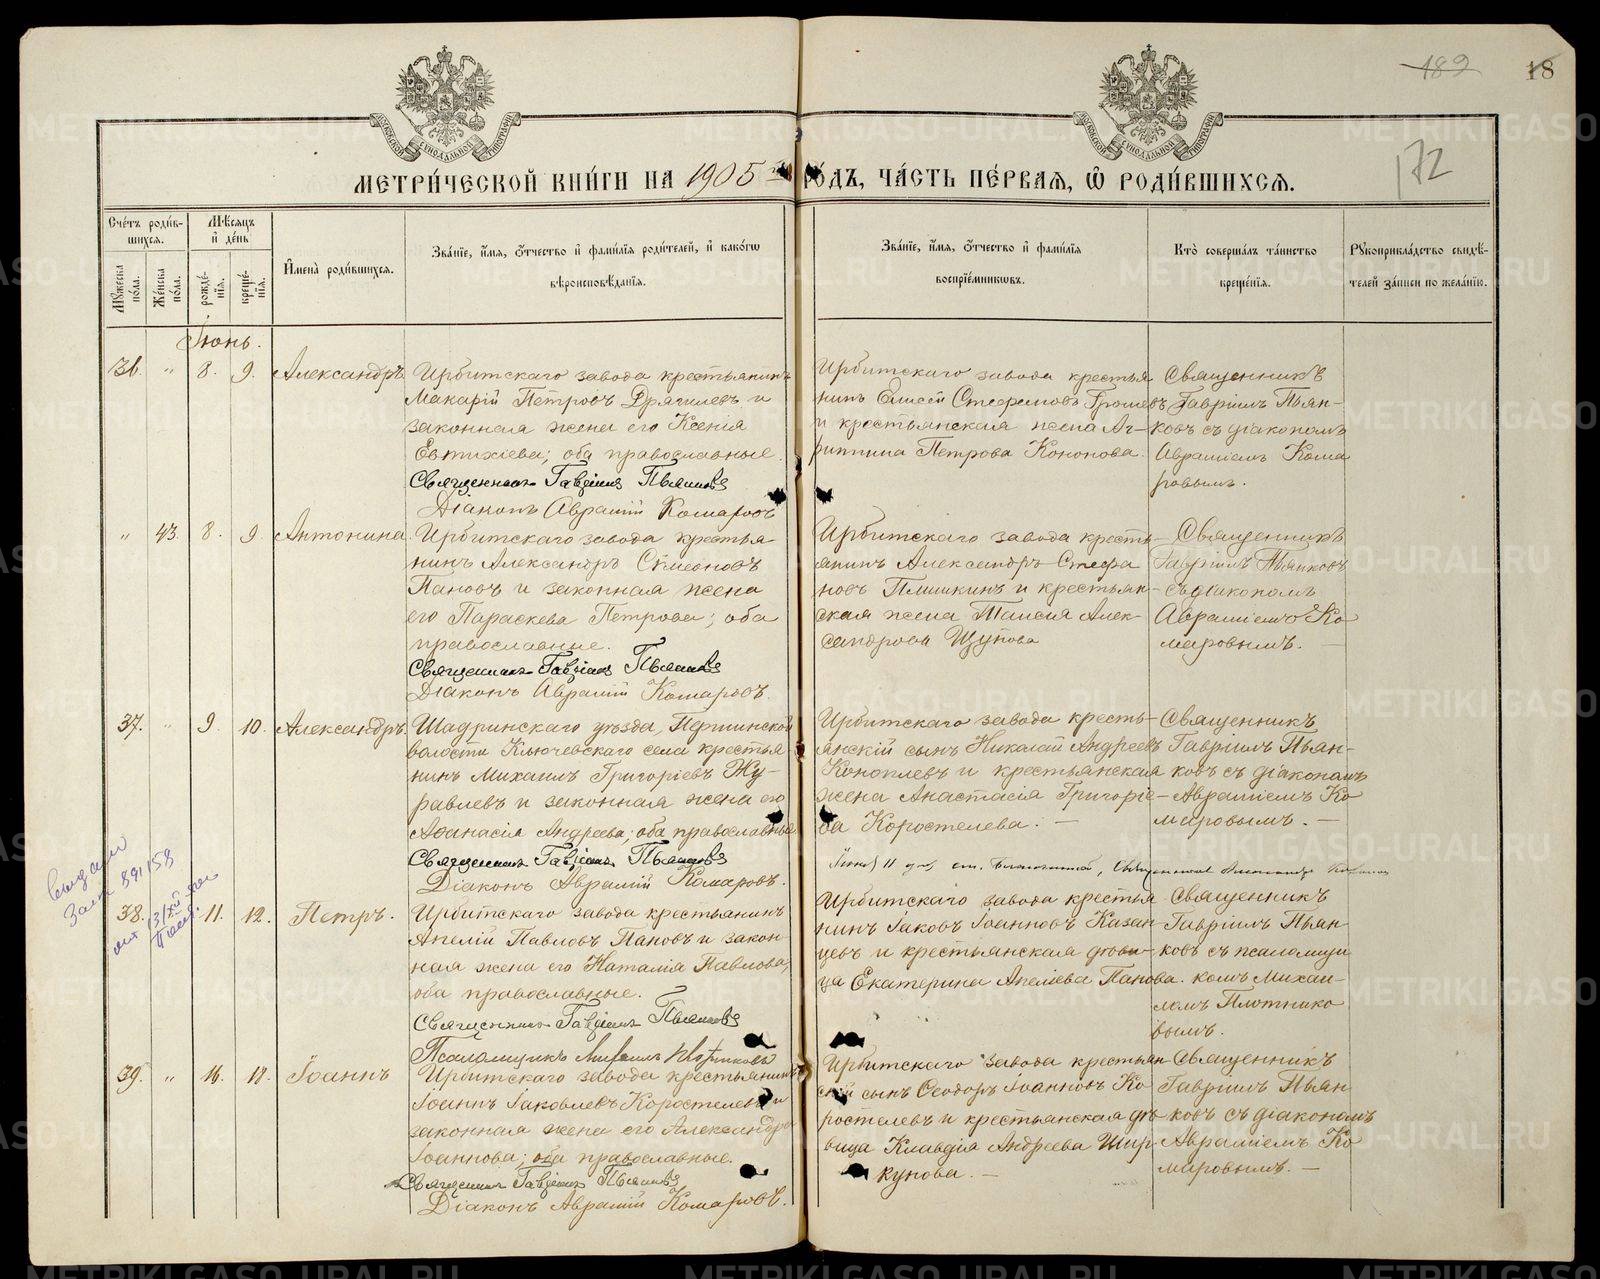 189
18
172
МЕТРИ́ЧЕСКОЙ КНИ́ГИ НА 1905 ГО́ДЪ, ЧА́СТЬ ПЕ́РВАѦ, Ѽ РОДИ́ВШИХСѦ.
Сче́тъ роди́вшихсѧ.
Мѣ́сѧцъ и҆ де́нь
Мꙋ́жеска по́ла.
Же́нска по́ла.
рожде́нїѧ.
креще́нїѧ.
И҆мена̀ роди́вшихсѧ.
Зва́нїе, и҆́мѧ, ѻ҆́тчество и҆ фами́лїѧ роди́телей, и҆ како́гѡ
вѣроисповѣ́данїѧ.
Зва́нїе, и҆́мѧ, ѻ҆́тчество и҆ фами́лїѧ
воспрїе́мникѡвъ.
Кто̀ соверша́лъ та́инство
креще́нїѧ.
Рꙋкоприкла́дство свидѣ́телей за́писи по жела́нїю.
Іюнь.
36. " 8. 9. Александръ
Ирбитскаго завода крестьянинъ
Макарій Петровъ Дрягилевъ и
законная жена его Ксенія
Евтихіева; оба православные.
Священникъ Гавріилъ Пьянковъ
Діаконъ Аврамій Комаровъ
Ирбитскаго завода крестья
нинъ Елисей Стефановъ
и крестьянская жена Аг-
риппина Петрова Кононова.
Священникъ
Гавріилъ Пьян-
ковъ съ діакономъ
Авраміемъ Кома
ровымъ.
" 43. 8. 9. Антонина
Ирбитскаго завода крестья-
нинъ Александръ Симеоновъ
Пановъ и законная жена
его Параскева Петрова; оба
православные.
Священникъ Гавріилъ Пьянковъ
Діаконъ Аврамій Комаровъ.
Ирбитскаго завода кресть-
янинъ Александръ Стефа
новъ Пмишкинъ и крестьян-
ская жена Таисія Алек-
сандрова Щупова
Священникъ
Гавріилъ Пьянковъ
съ діакономъ
Авраміемъ Ко
маровымъ.
37. " 9. 10. Александръ.
Шадринскаго уѣзда, Першинской
волости Ключевскаго села крестья-
нинъ Михаилъ Григоріевъ Жу-
равлевъ и законная жена его
Аѳанасія Андреева; оба православные
Священникъ Гавріилъ Пьянковъ
Діаконъ Аврамій Комаровъ.
Ирбитскаго завода кресть-
янскій сынъ Николай Андреевъ
Коноплевъ и крестьянская
жена Анастасія Григоріе-
ва Коростелева. —
Священникъ
Гавріилъ Пьян-
ковъ съ діакономъ
Авраміемъ Ко
маровымъ. —
Іюня 11 дня
38. 11. 12. Петръ.
Ирбитскаго завода крестьянинъ
Апелій Павловъ Пановъ и закон-
ная жена его Наталія Павлова;
оба православные.
Священникъ Гавріилъ Пьянковъ
Псаломщикъ Михаилъ Плотниковъ
Ирбитскаго завода крестья
нинъ Іаковъ Іоанновъ Казан-
цевъ и крестьянская дѣви-
ца Екатерина Апеліева Панова.
Священникъ
Гавріилъ Пьян
ковъ съ псаломщи
комъ Михаи-
ломъ Плотнико
вымъ.
39. " 16. 18. Іоаннъ
Ирбитскаго завода крестьянинъ
Іоаннъ Іаковлевъ Коростелевъ и
законная жена его Александра
Іоаннова; оба православные.
Священникъ Гавріилъ Пьянковъ
Діаконъ Аврамій Комаровъ.
Ирбитскаго завода крестьян
скій сынъ Ѳеодоръ Іоанновъ Ко
ростелевъ и крестьянская дѣ
вица Клавдія Андреева Шир-
кунова. —
Священникъ
Гавріилъ Пьян
ковъ съ діакономъ
Авраміемъ Ко
маровымъ. —